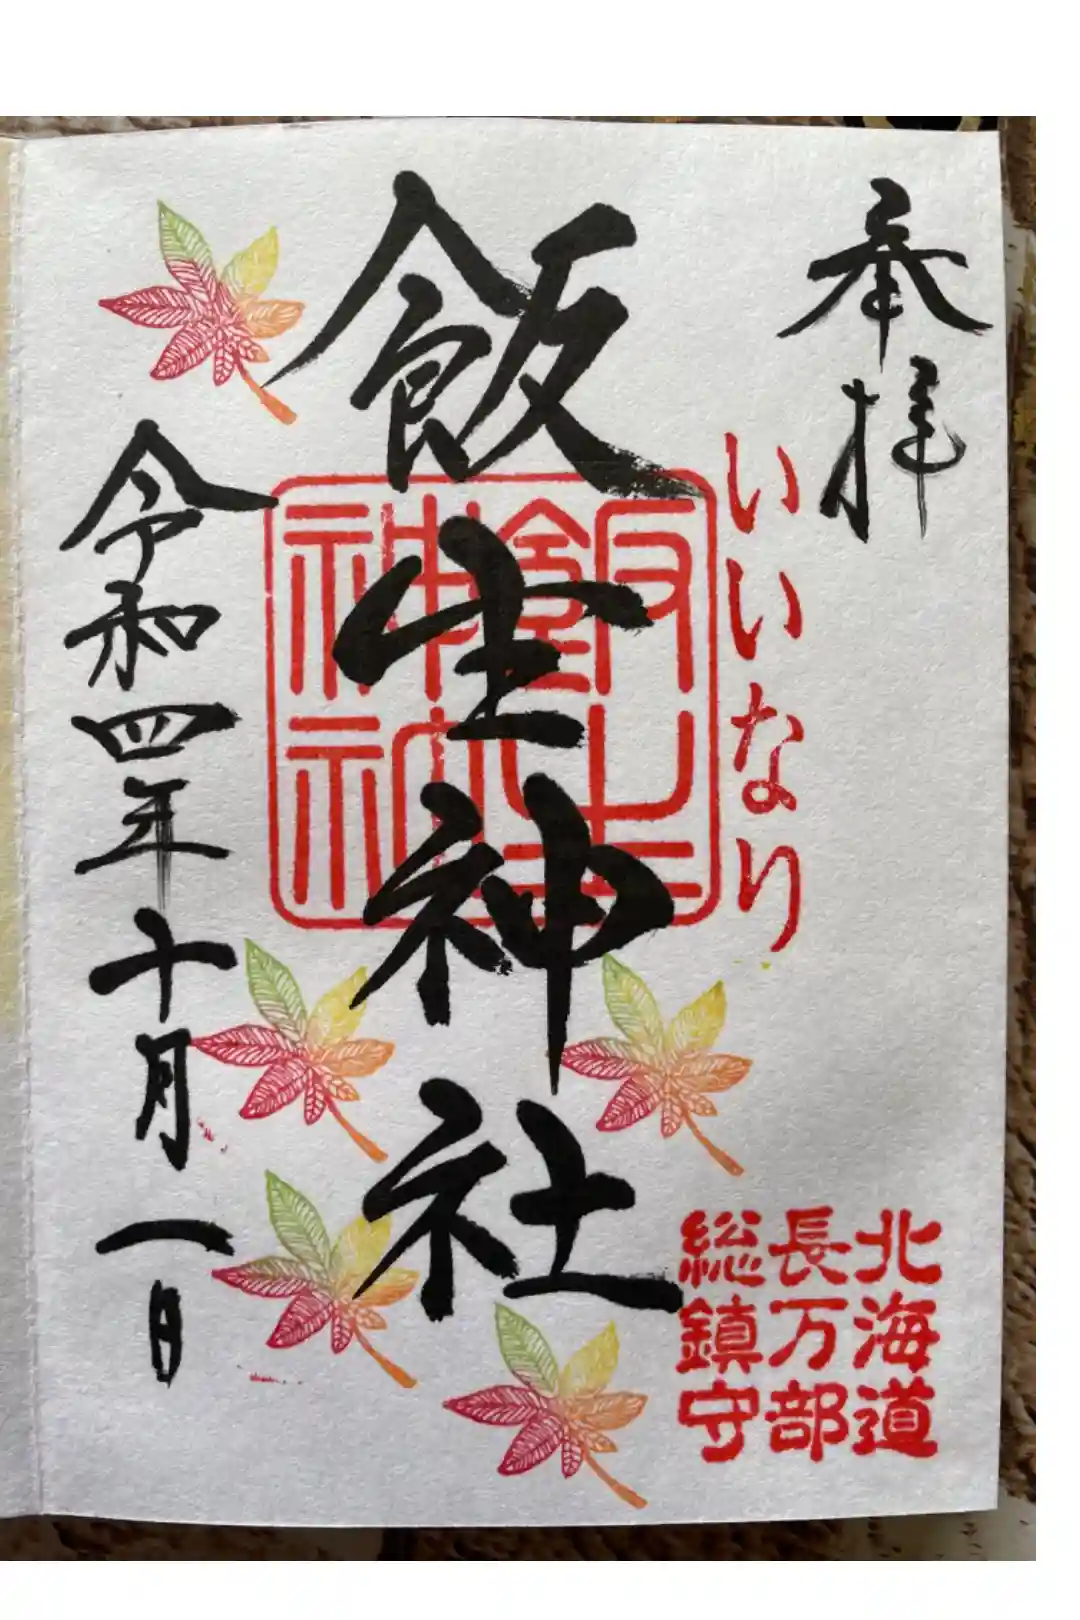 奉拝
いいなり
北海道
長万部
総鎮守
飯生神社
飯生
神社
令和四年十月一日